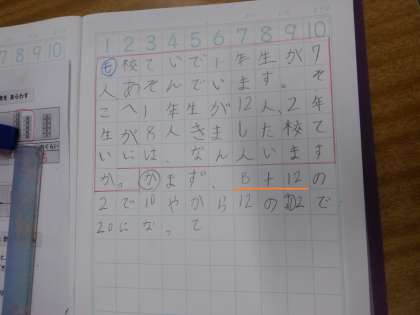 1 2 3 4 5 6 7 8 9 10
も 校ていで1年生が9
人、あそんでいます。そ
こへ1年生が12人、2年
生が8人きました校て
いには、なん人います
か。か まず、8+12の
2で10やから12の 2で
20にな。て
7 8 9 10